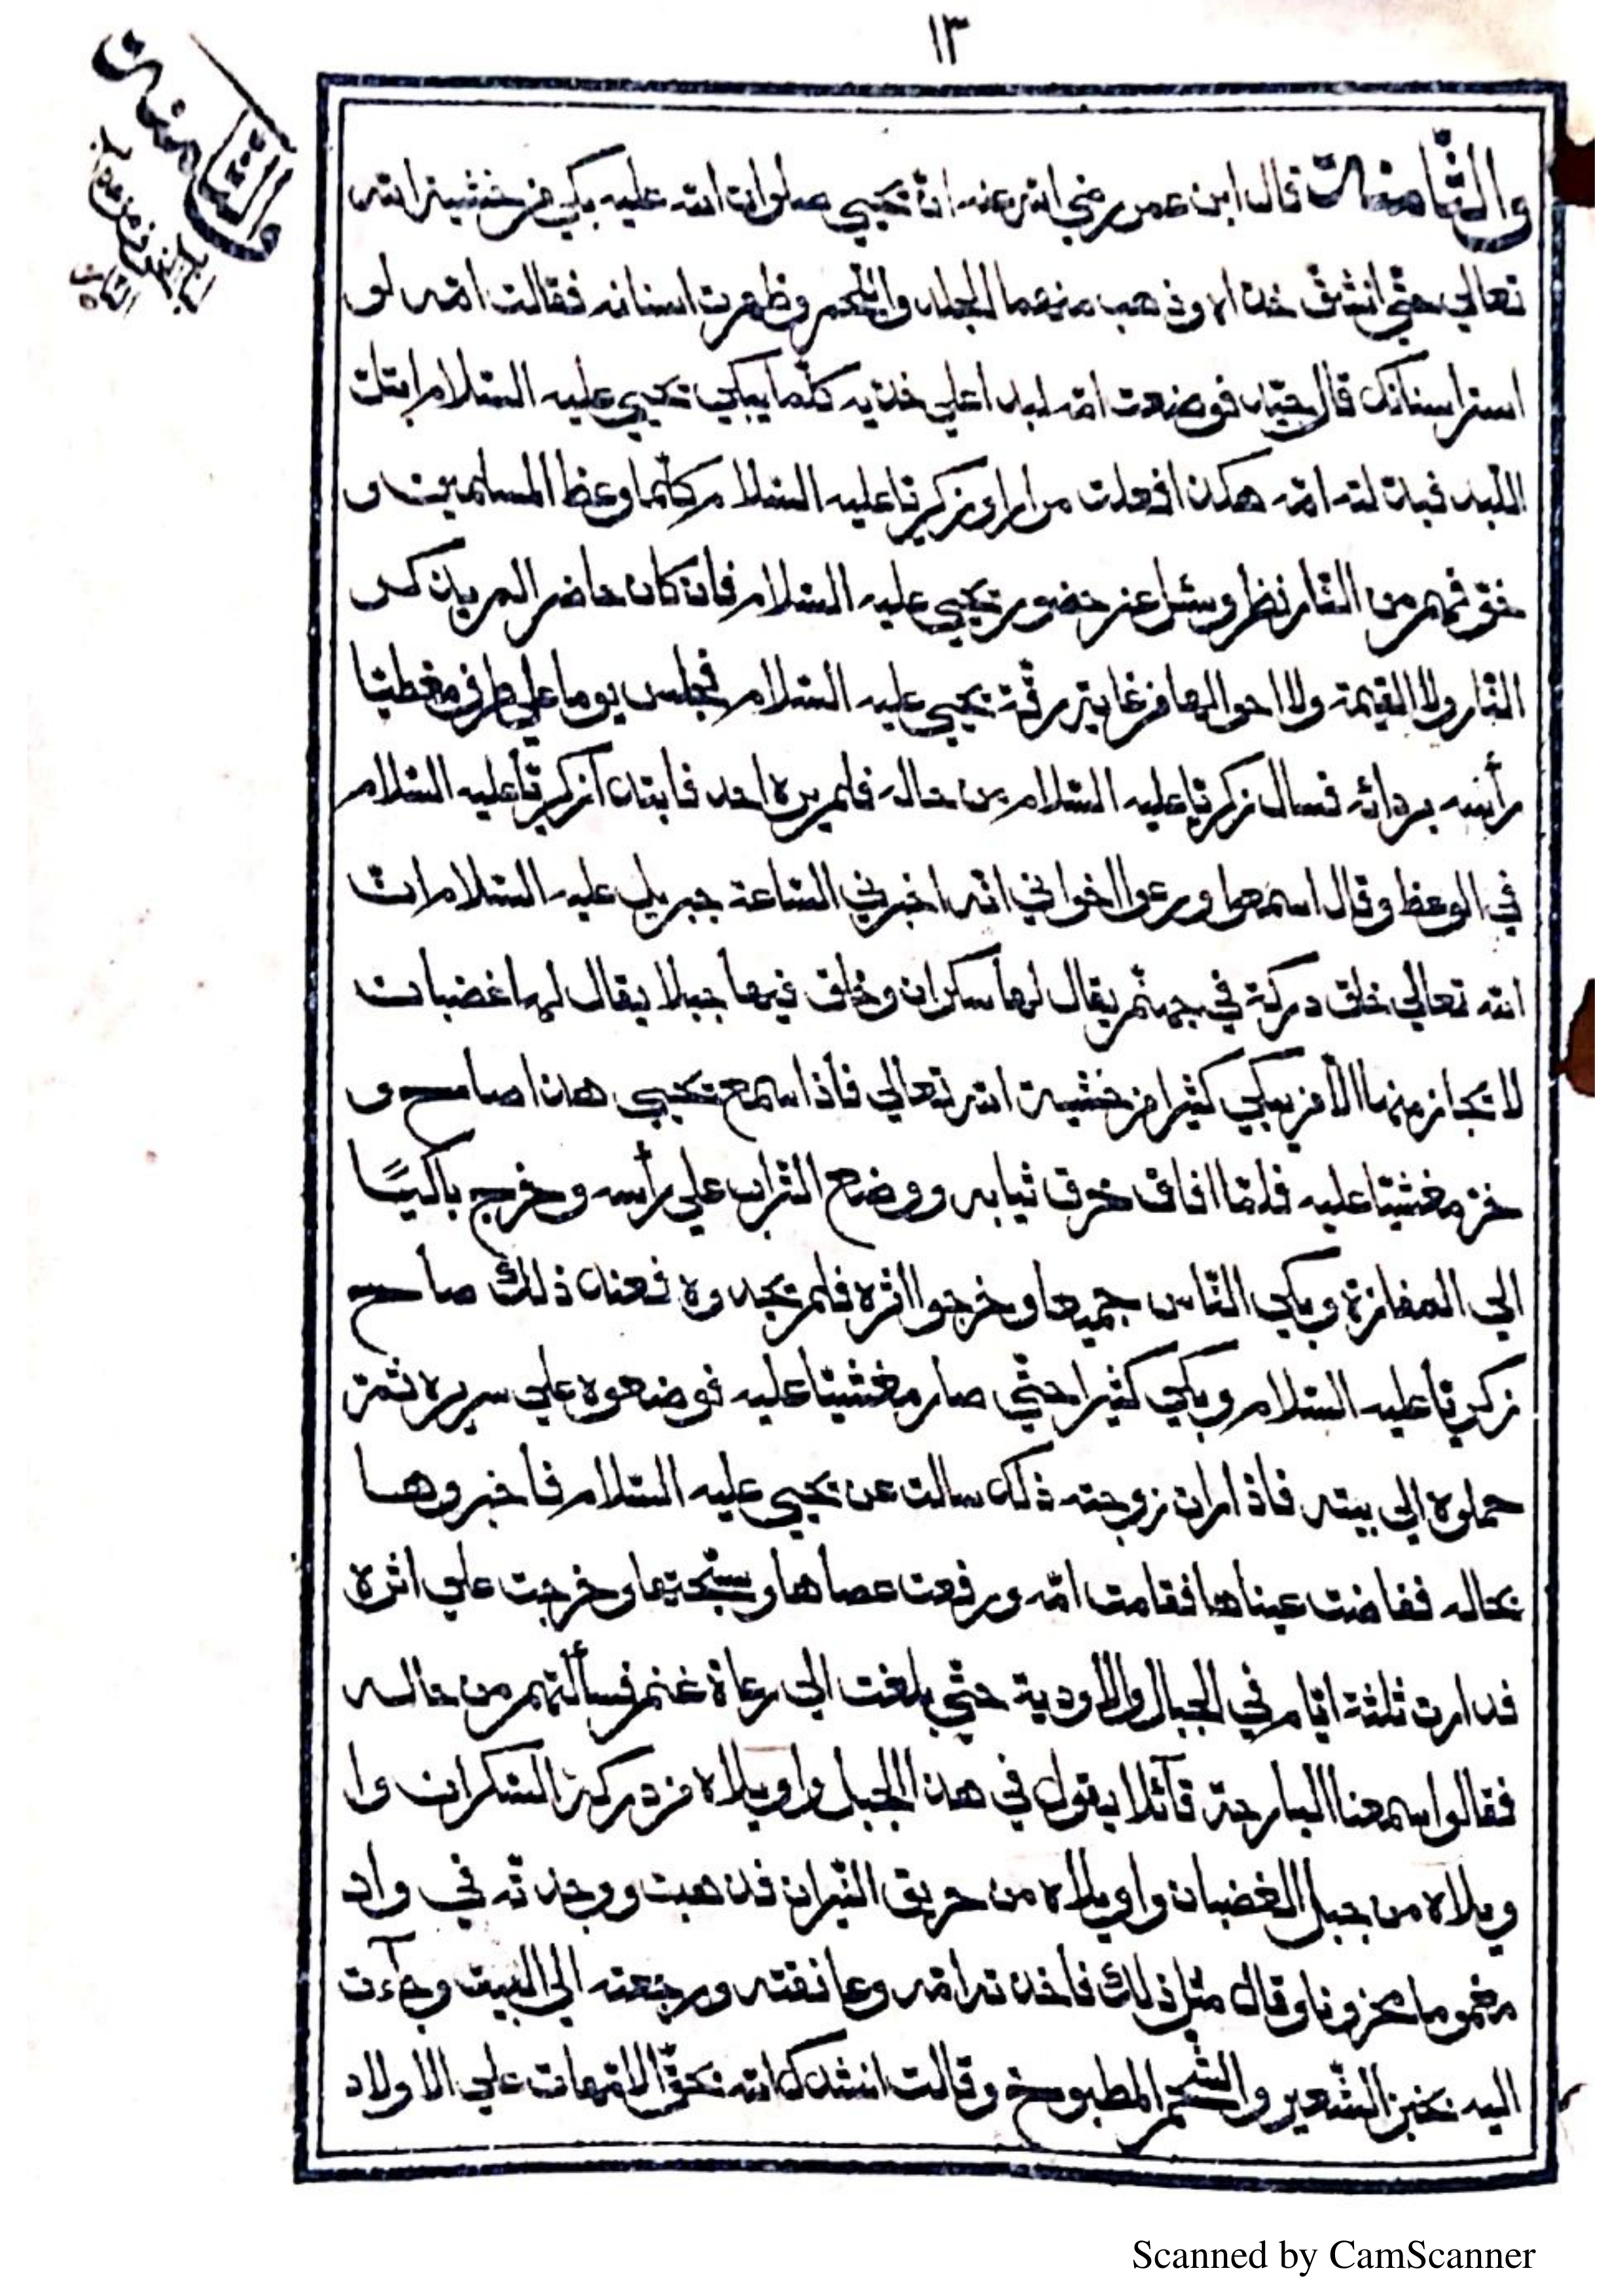 ١٣
والثّامنة
والثّامنة قال ابن عمر رضي الله عنه انّ يحيي صلوات الله عليه بكي من خشية الله
تعالي حتّي انشقّ خداه وذهب منهما الجلد واللّحم وظهرت اسنانه فقالت امّه لو
استر اسنانك قال جيّد فوضعت امّه لبدا علي خدّيه كلّما يبكي يحيي عليه السّلام ابتلّ
اللّبد فبدّلته امّه هكذا فعلت مرارا وزكريّا عليه السّلام كلّما وعظ المسلمين و
خوّفهم من النّار نظر وسئل عن حضور يحيي عليه السّلام فان كان حاضرا لم يذكر
النّار ولا القيمة ولا احوالها من غاية رقّة يحيي عليه السّلام فجلس يوما علي طرف مغطيّا
رأسه بردائه فسال زكريّا عليه السّلام من حاله فلم يره احد فابتدا زكريّا عليه السّلام
في الوعظ وقال اسمعوا وعوا اخواني انّه اخبرني السّاعة جبريل عليه السّلام انّ
الله تعالي خلق دركة في جهنّم يقال لها سكران وخلق فيها جبلا يقال لها غضبان
لا يجاز منها الّا من يبكي كثيرا من خشية الله تعالي فاذا سمع يحيي هذا صاح و
خرّ مغشيّا عليه فلمّا افاق خرق ثيابه ووضع التّراب علي رأسه وخرج باكيًا
الي المفازة وبكي النّاس جميعا وخرجوا اثره فلم يجدوه فعند ذلك صاح
زكريّا عليه السّلام وبكي كثيرا حتّي صار مغشيّا عليه فوضعوه علي سريره ثمّ
حملوه الي بيته فاذا رات زوجته ذلك سالت عن يحيي عليه السّلام فاخبروها
بحاله ففاضت عيناها فقامت امّه ورفعت عصاها وسبّحتها وخرجت علي اثره
فدارت ثلثة ايّام في الجبال والاودية حتّي بلغت الي رعاة غنم فسألتهم من حاله
فقالوا سمعنا البارحة قآئلا يقول في هذا الجبل واويلاه من دركة السّكران وا
ويلاه من جبل الغضبان واويلاه من حريق النّيران فذهبت ووجدته في واد
مغموما محزونا وقال مثل ذلك فاخذته امّه وعانقته ورجعته الي البيت وجآءت
اليه بخبز الشّعير والشّحم المطبوخ وقالت انشدك الله بحقّ الامّهات علي الاولاد
Scanned by CamScanner